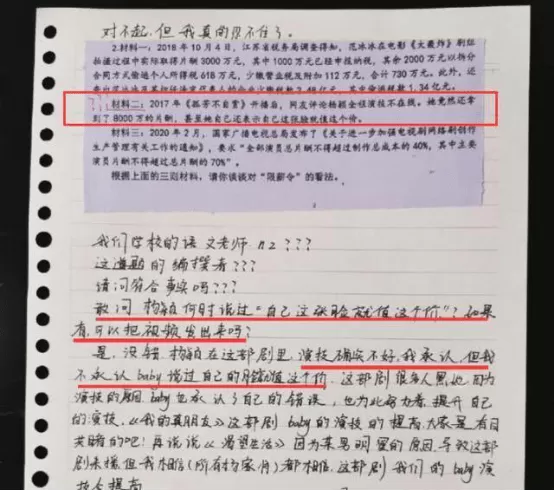 对不起,但我真的忍不住了。
2.材料一:2018年10月4日,江苏省税务局调查得知,范冰冰在电影《大轰炸》剧组
拍摄过程中实际取得片酬3000万元,其中1000万元已经申报纳税,其余2000万元以拆分
合同方式偷逃个人所得税618万元,少缴营业税及附加112万元,合计730万元。此外,还
1.34亿元。
???材料二:2017年《孤芳不自赏》开播后,网友评论杨颖全程演技不在线。她竟然还拿
到了8000万的片酬,甚至她自己还表示自己这张脸就值这个价。
材料三:2020年2月,国家广播电视总局发布了《关于进一步加强电视剧网络剧创作
生产管理有关工作的通知》,要求“全部演员总片酬不得超过制作总成本的40%,其中主要
演员片酬不得超过总片酬的70%”。
根据上面的三则材料,请你谈谈对“限薪令”的看法。
我们学校的语文老师 n2???
这道题的编撰者???
请问符合事实吗???
敢问杨颖何时说过“自己这张脸就值这个价”?如果
有,可以把视频发出来吗?
是,没错,杨颖在这部剧里,演技确实不好,我承认,但我
不承认baby说过自己的脸就值这个价,这部剧很多人黑她,因为
演技的原因,baby也承认了自己的错误,也为此努力着,提升自己
的演技,《我的真朋友》这部剧baby的演技的提高大家是有目
共睹的吧!再说说《渴望生活》因为某男明星的原因,导致这部
剧未播但我相信(所有杨家月)都相信,这部剧我们的baby演
技会提高